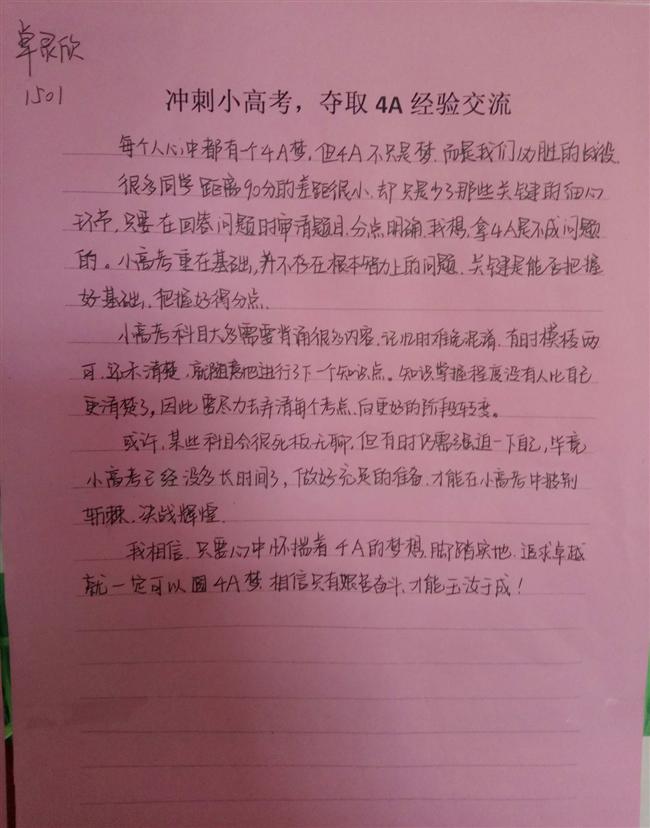 卓灵欣
1501
冲刺小高考，夺取 4A 经验交流
每个人心中都有一个4A梦，但4A不只是梦，而是我们必胜的战役。
很多同学距离90分的差距很小，却只是少了那些关键的细心
环节，只要在回答问题时审清题目，分点明确，我想，拿4A是不成问题
的。小高考重在基础，并不存在根本智力上的问题，关键是能否把握
好基础，把握好得分点。
小高考科目大多需要背诵很多内容，记忆时难免混淆，有时模棱两
可，还未清楚，就随意地进行了下一个知识点。知识掌握程度没有人比自己
更清楚了，因此要尽力去弄清每个考点，向更好的阶段转变。
或许，某些科目会很死板无聊，但有时仍需强迫一下自己，毕竟
小高考已经没多长时间了，做好充足的准备，才能在小高考中披荆
斩棘，决战辉煌。
我相信，只要心中怀揣着4A的梦想，脚踏实地，追求卓越
就一定可以圆4A梦，相信只有艰苦奋斗，才能玉汝于成！